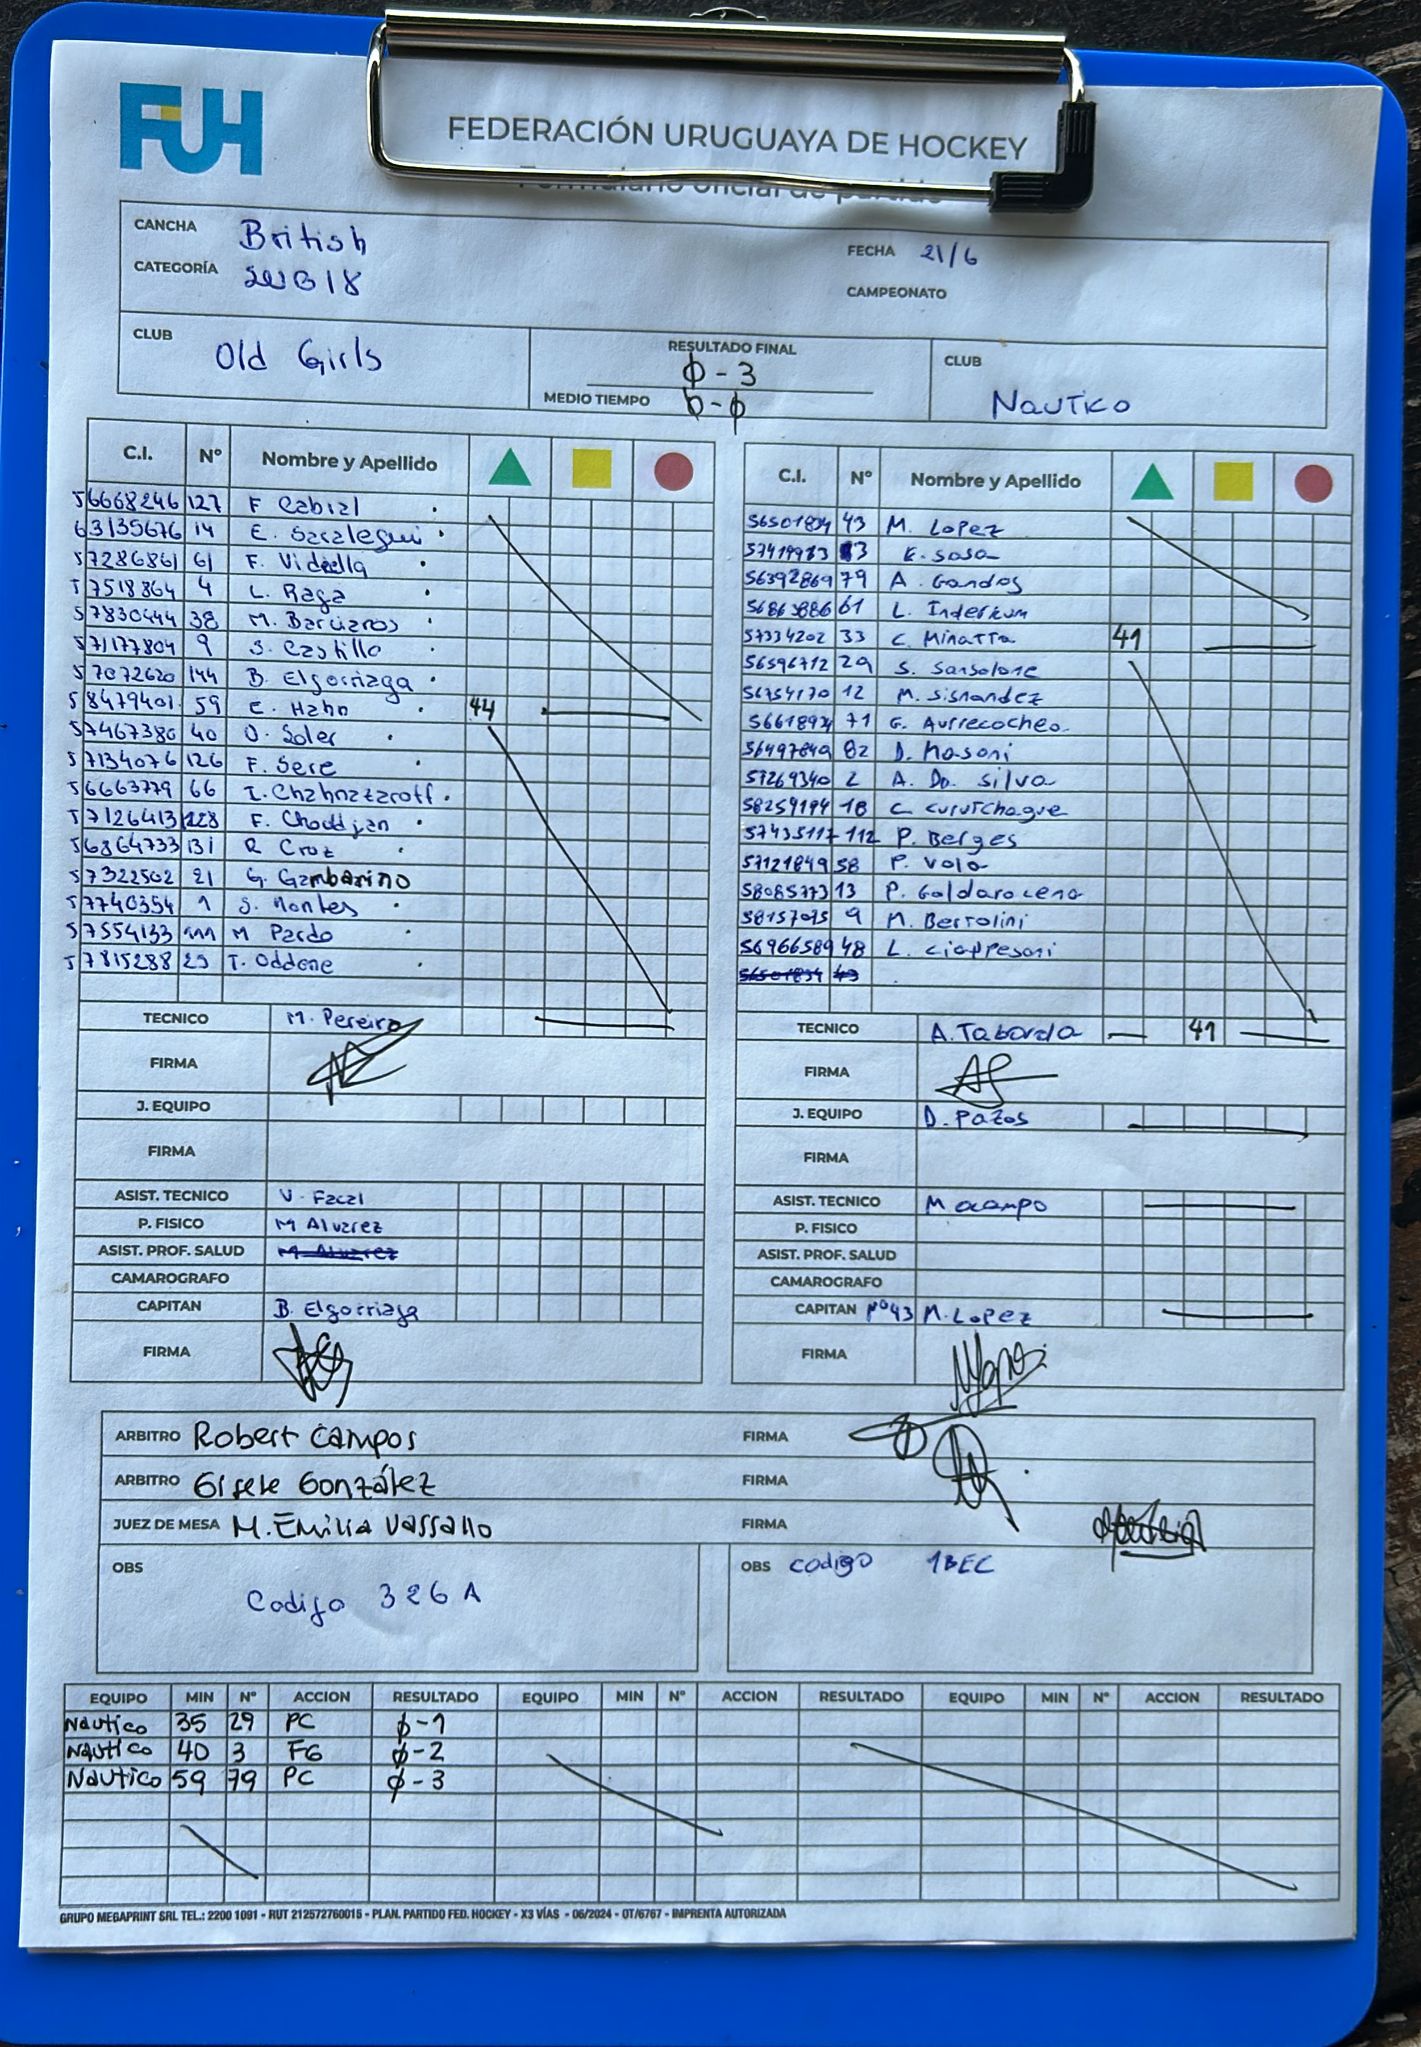 FUH
FEDERACIÓN URUGUAYA DE HOCKEY
Formulario oficial de partido
CANCHA British
FECHA 21/6
CATEGORÍA SUB18
CAMPEONATO
CLUB Old Girls
RESULTADO FINAL
Φ - 3
MEDIO TIEMPO Φ - Φ
CLUB Nautico
C.I. Nº Nombre y Apellido
56668246 127 F Cabral
63135676 14 E. Sasalegui
57286861 61 F. Vidiella
57518864 4 L. Raga
57830444 38 M. Barcaros
571177804 9 S. Castillo
57072620 144 B. Elgorriaga
58479401 59 E. Hahn 44
57467380 40 O. Soler
57134076 126 F. Sere
56663779 66 I. Chahnazaroff
57126413 128 F. Chouldjian
56864733 131 R Cruz
57322502 21 G. Gambarino
57740354 1 S. Montes
57554133 111 M Pardo
57815288 25 T. Oddone
TECNICO M. Pereira
FIRMA
J. EQUIPO
FIRMA
ASIST. TECNICO V. Facal
P. FISICO M Alvarez
ASIST. PROF. SALUD M Alvarez
CAMAROGRAFO
CAPITAN B. Elgorriaga
FIRMA
C.I. Nº Nombre y Apellido
56501834 43 M. Lopez
57419983 3 E. Sosa
56392869 79 A. Gandos
56863886 61 L. Indericum
57334202 33 C. Minatta 41
56596712 29 S. Sansolone
56754170 12 M. Sisnandez
56618924 71 G. Aurrecochea
56497849 82 D. Masoni
57269340 2 A. Da Silva
58259194 18 C. Curutchague
57435117 112 P. Berges
57121849 58 P. Volo
58085773 13 P. Galdaracena
58157075 9 M. Bertolini
56966589 48 L. Ciapresoni
56501834 43
TECNICO A. Taborda 41
FIRMA
J. EQUIPO D. Pazos
FIRMA
ASIST. TECNICO M ocampo
P. FISICO
ASIST. PROF. SALUD
CAMAROGRAFO
CAPITAN Nº43 M. Lopez
FIRMA
ARBITRO Robert Campos FIRMA
ARBITRO Gisele González FIRMA
JUEZ DE MESA M. Emilia Vassallo FIRMA
OBS Codigo 326A
OBS codigo 1BEC
EQUIPO MIN Nº ACCION RESULTADO EQUIPO MIN Nº ACCION RESULTADO EQUIPO MIN Nº ACCION RESULTADO
Nautico 35 29 PC Φ-1
Nautico 40 3 FG Φ-2
Nautico 59 79 PC Φ-3
GRUPO MEGAPRINT SRL TEL.: 2200 1091 - RUT 212572760015 - PLAN. PARTIDO FED. HOCKEY - X3 VÍAS - 06/2024 - OT/6767 - IMPRENTA AUTORIZADA